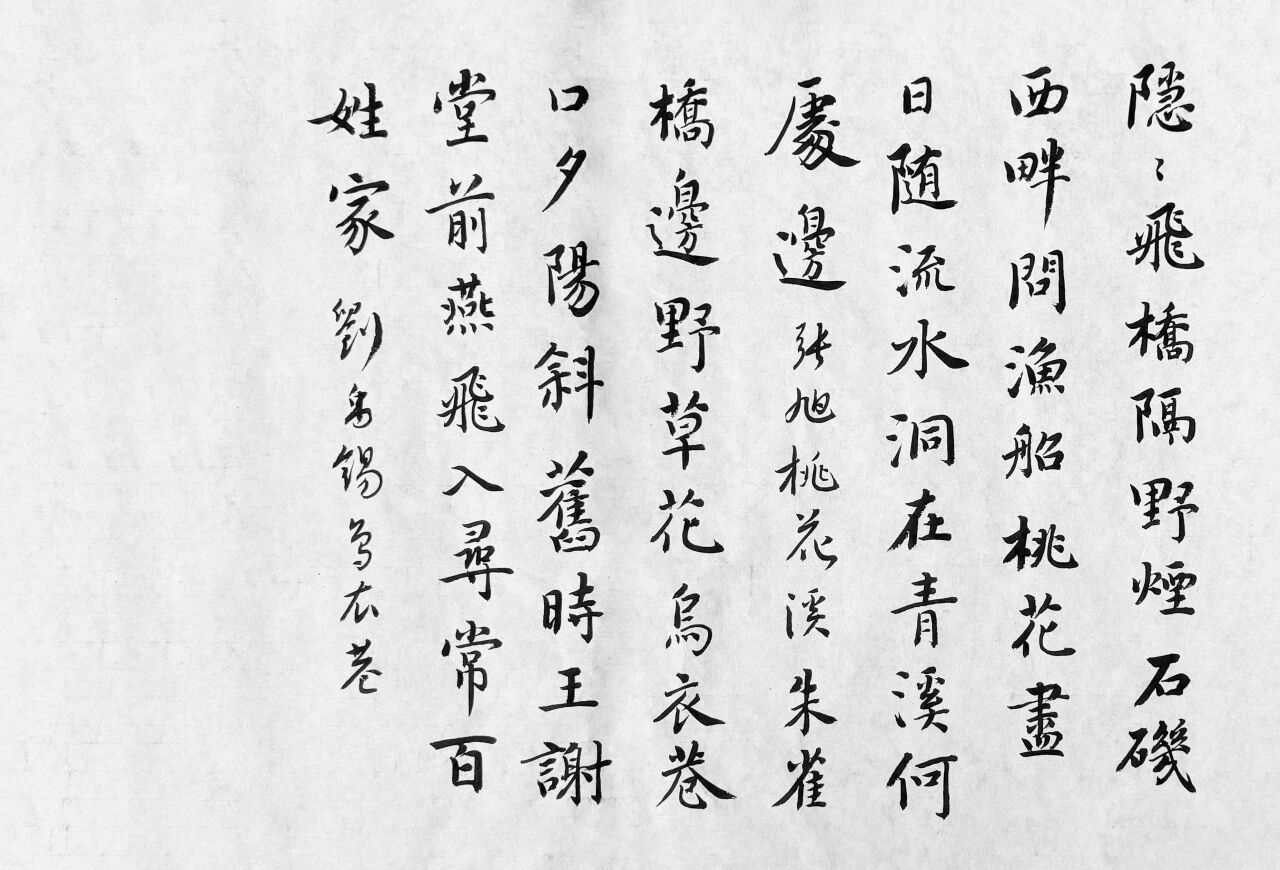 隱〻飛橋隔野煙石磯
西畔問漁船桃花盡
日随流水洞在青溪何
處邊 张旭桃花溪 朱雀
橋邊野草花烏衣巷
口夕陽斜舊時王謝
堂前燕飛入尋常百
姓家 劉禹錫烏衣巷